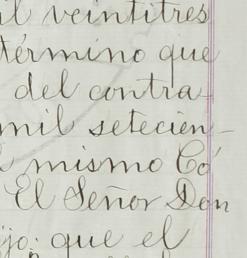 il veintitres
término que
del contra-
mil setecien-
mismo Có
El Señor Don
jo: que el